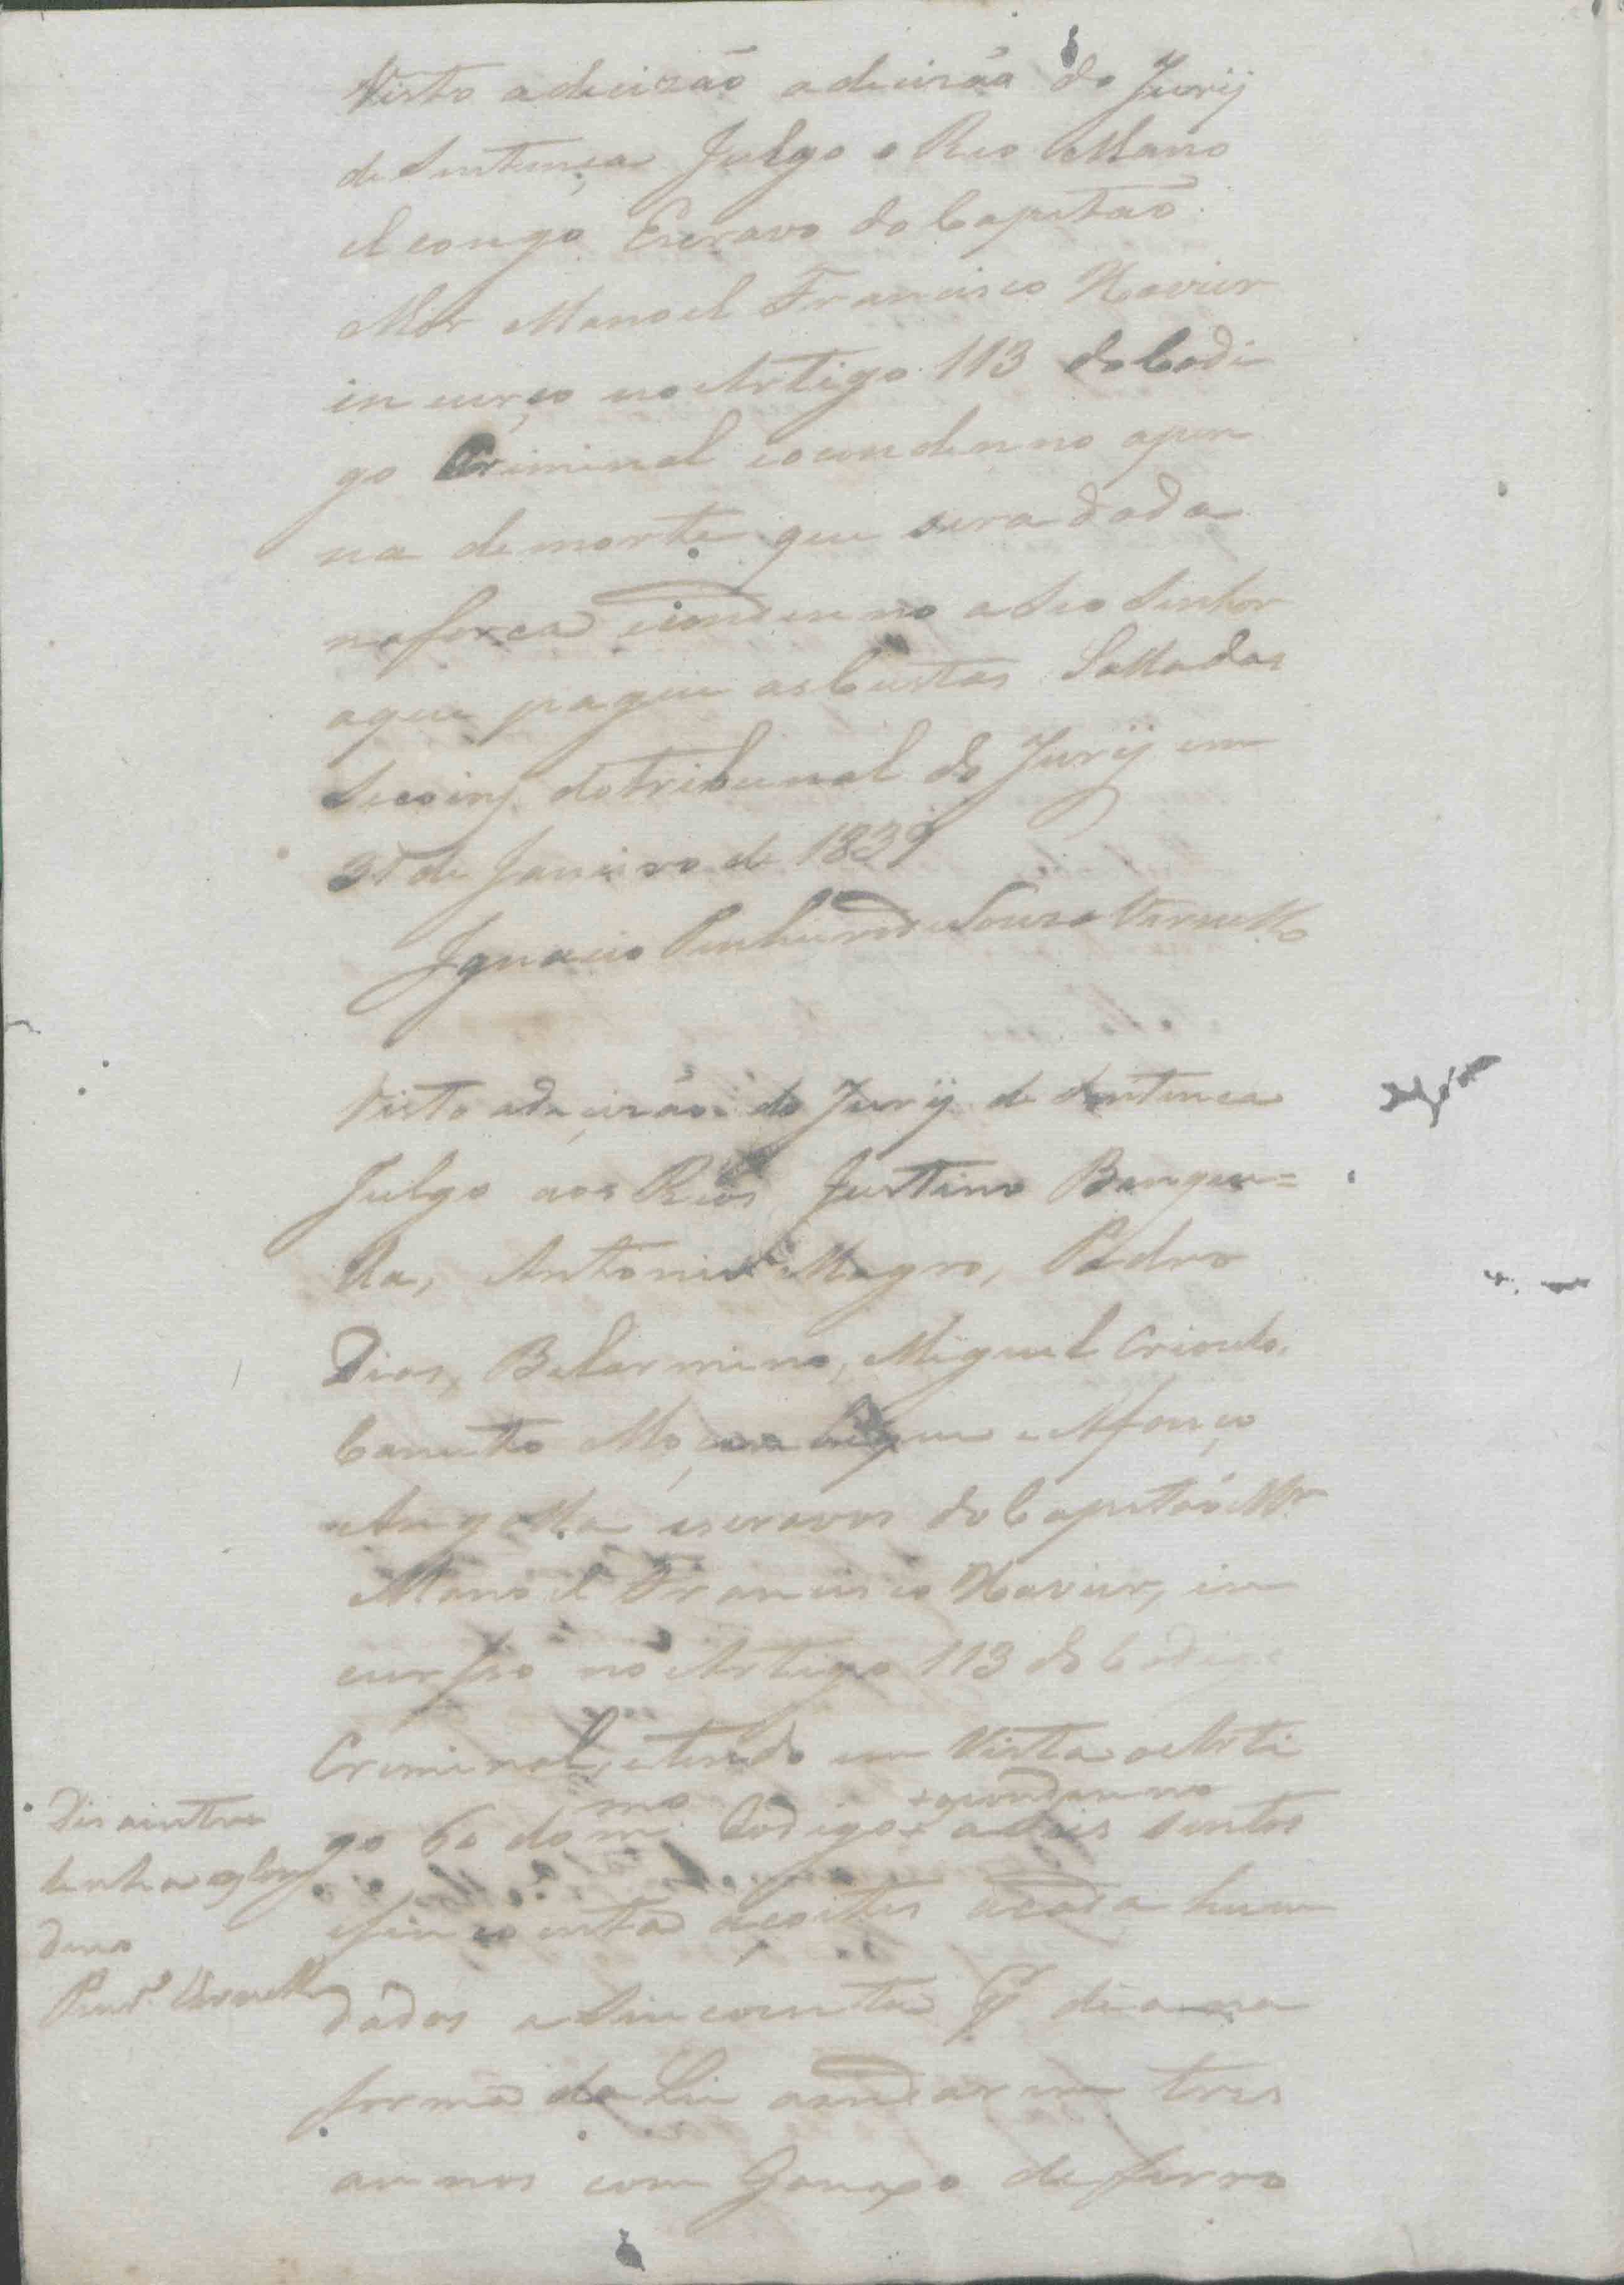 Visto adecizão adecizão do Jurÿ
de Sentença Julgo o Reo Mano
el congo Escravo do Capitão
Mór Manoel Francisco Xavier
incurço no Artigo 113 do Codi
go Criminal eocondenno apen
na demorte que sera dada
naforca econdenno a Seo Senhor
aque pague asCustas Salla das
Secoins dotribunal do Jurÿ em
31 de Janeiro de 1839
Ignacio Pinheiro de Souza Vernek
Visto adecizão do Jurÿ de Sentenca
Julgo aos Réos Justino Bengue=
lla, Antonio Magro, Pedro
Dias, Belarmino, Miguel Crioulo,
Canuto Moçambique e Afonço
Angolla escravos do Capitão Mór
Manoel Francisco Xavier, in
curso no Artigo 113 do Codigo
Criminal, etendo em Vista oArti
go 60 do mmo Codigo + ocondenno
aSeis Sentos
eSincoenta açoites acada hum
dados aSincoenta pr dia na
forma da Lei aandarem tres
annos com Gonxo deferro
Dis aentre
linha
Pinro Vernek